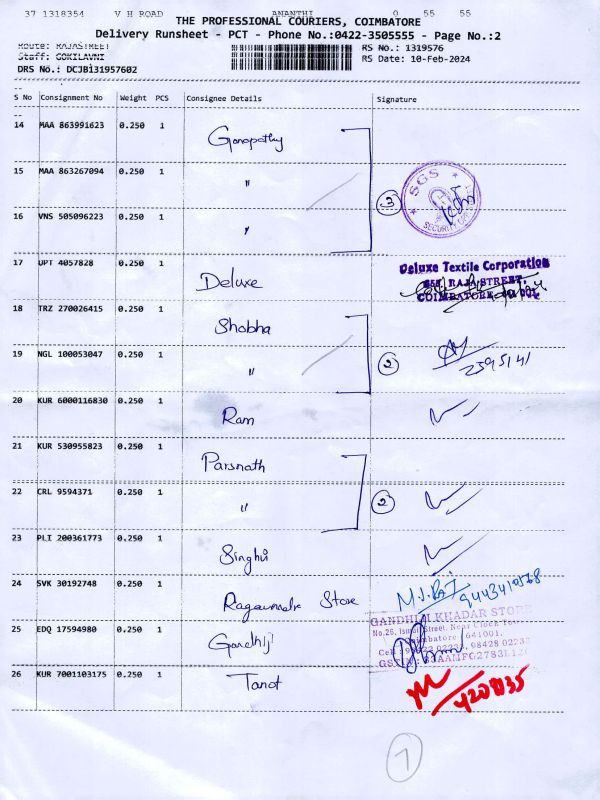 37 1318354 V H ROAD ANANTHI 0 55 55
THE PROFESSIONAL COURIERS, COIMBATORE
Delivery Runsheet - PCT - Phone No.:0422-3505555 - Page No.:2
Route: RAJASTREET
RS No.: 1319576
Staff: GOKILAVNI
RS Date: 10-Feb-2024
DRS No.: DCJB131957602
S No Consignment No Weight PCS Consignee Details Signature
14 MAA 863991623 0.250 1 Ganapathy
15 MAA 863267094 0.250 1 "
3
SGS
SECURITY
16 VNS 505096223 0.250 1 "
17 UPT 4057828 0.250 1 Deluxe
Deluxe Textile Corporation
RAJA STREET,
COIMBATORE
18 TRZ 270026415 0.250 1 Shobha
19 NGL 100053047 0.250 1 "
2
2595141
20 KUR 6000116830 0.250 1 Ram
21 KUR 530955823 0.250 1 Parsnath
22 CRL 9594371 0.250 1 "
2
23 PLI 200361773 0.250 1 Singhvi
24 SVK 30192748 0.250 1 Ragavendr Store
M.J.Raj
9443410568
GANDHIJI KHADAR STORE
No.26, Ismail Street, Near Clock Tower
25 EDQ 17594980 0.250 1 Gandhiji
Coimbatore 641001.
26 KUR 7001103175 0.250 1 Tanot
4208135
7